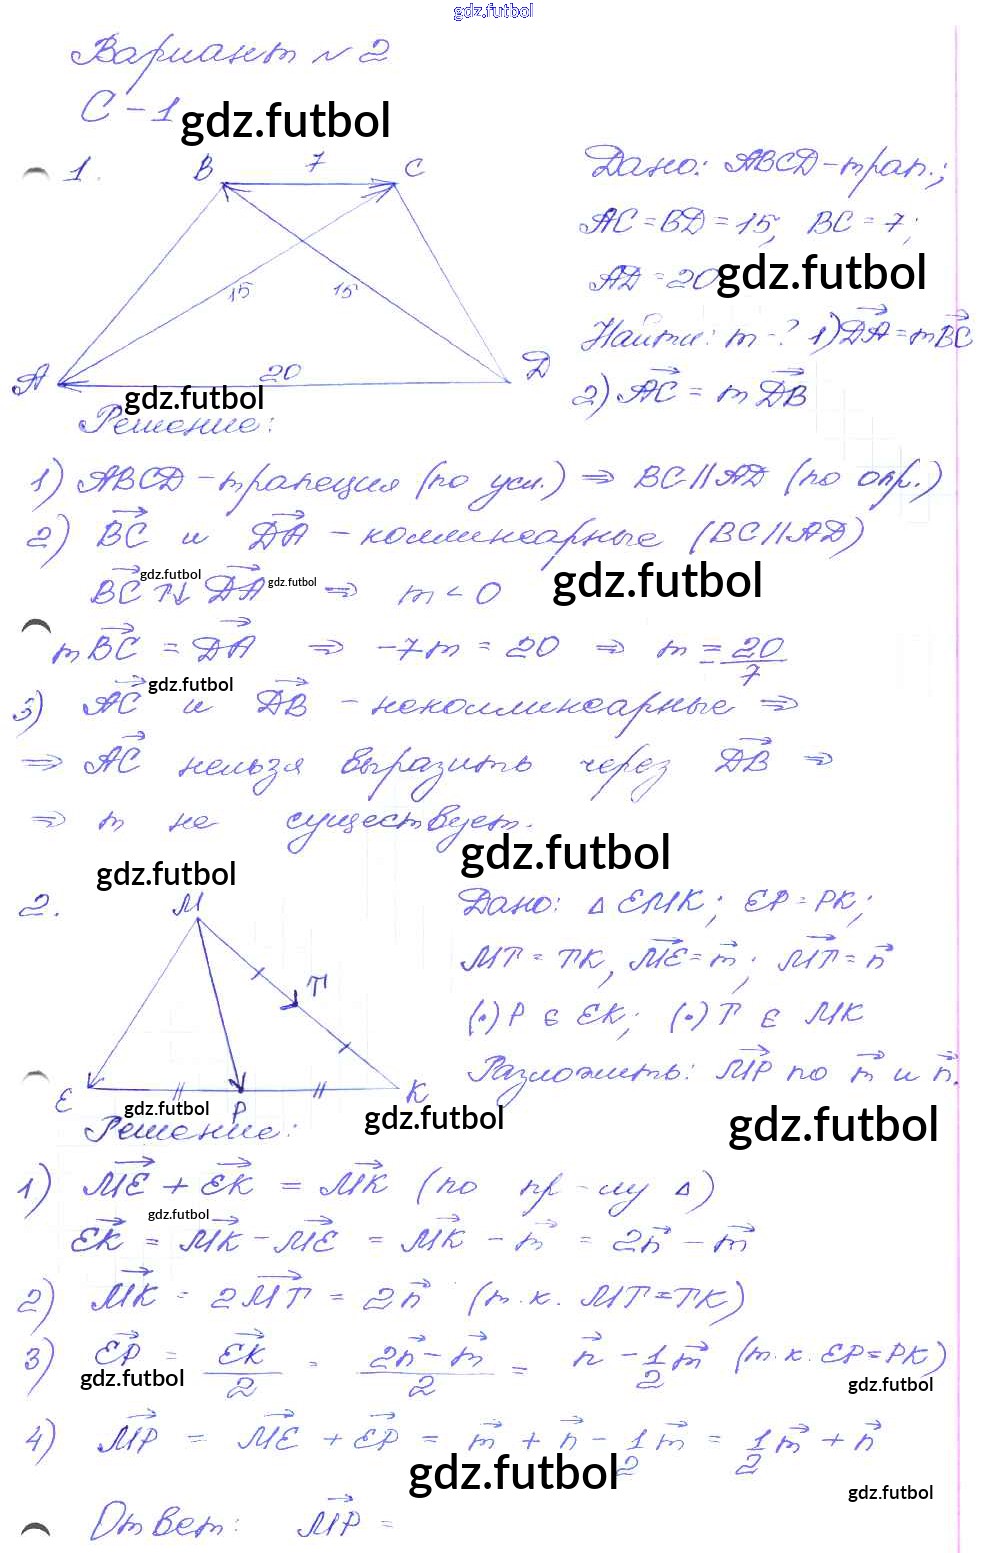 gdz.futbol
Вариант №2
С-1 gdz.futbol
1. B 7 C
15 15
A 20 D
gdz.futbol
Дано: ABCD-трап.;
AC=BD=15, BC=7;
AD=20 gdz.futbol
Найти: m-? 1) DA=mBC
2) AC = mDB
Решение:
1) ABCD-трапеция (по усл.) ⇒ BC||AD (по опр.)
2) BC и DA - коллинеарные (BC||AD)
BC gdz.futbol ↑↓ DA gdz.futbol ⇒ m<0 gdz.futbol
mBC = DA ⇒ -7m = 20 ⇒ m = -20/7
gdz.futbol
3) AC и DB - неколлинеарные ⇒
⇒ AC нельзя выразить через DB ⇒
⇒ m не существует.
gdz.futbol gdz.futbol
2. M
T
E P K
gdz.futbol gdz.futbol
Дано: △EMK; EP=PK;
MT=TK, ME=m; MT=n
(·)P ∈ EK; (·)T ∈ MK
Разложить: MP по m и n.
gdz.futbol
Решение:
1) ME + EK = MK (по пр-лу △)
gdz.futbol
EK = MK - ME = MK - m = 2n - m
2) MK = 2MT = 2n (т.к. MT=TK)
3) EP = EK/2 = (2n-m)/2 = n - 1/2 m (т.к. EP=PK)
gdz.futbol gdz.futbol
4) MP = ME + EP = m + n - 1/2 m = 1/2 m + n
gdz.futbol gdz.futbol
Ответ: MP =